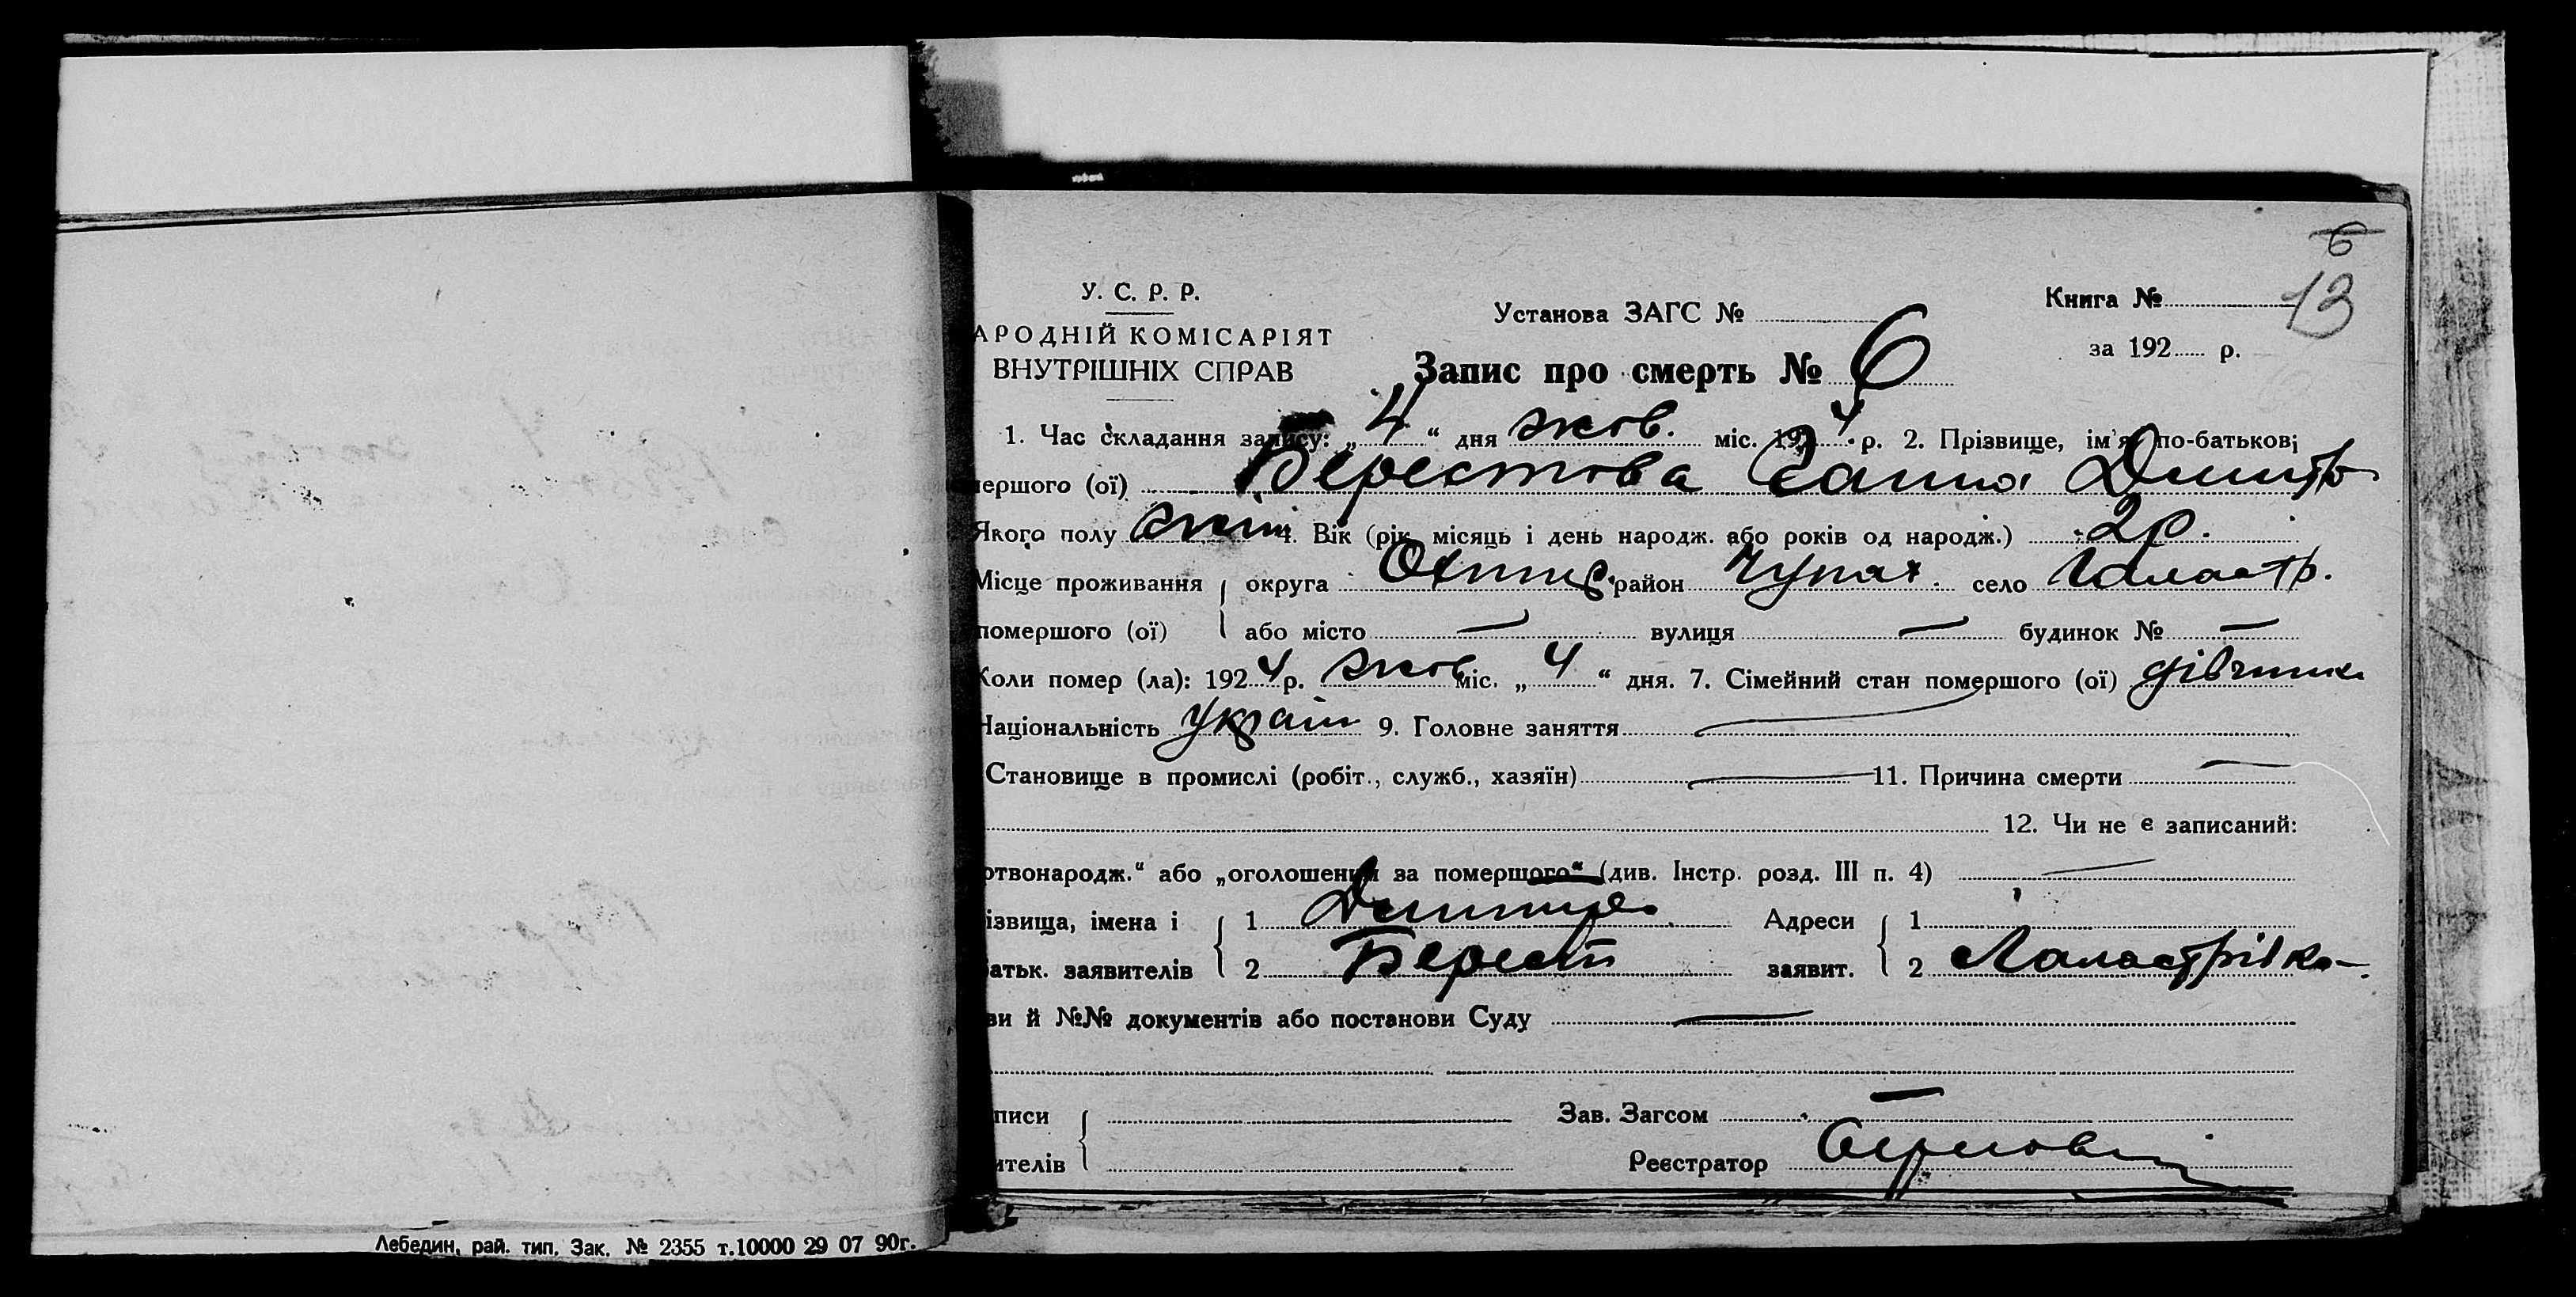 6
13
У. С. Р. Р.
АРОДНІЙ КОМІСАРІЯТ
ВНУТРІШНІХ СПРАВ
Установа ЗАГС №
Запис про смерть № 6
Книга №
за 192 р.
1. Час складання запису: „ 4 “ дня жов. міс. 192 4 р. 2. Прізвище, ім'я по-батькові
мершого (ої) Берестова Ганна Дмитр
Якого полу жін 4. Вік (рік, місяць і день народж. або років од народж.) 2 р.
Місце проживання округа Охтир. район Чупах. село
помершого (ої) або місто — вулиця — будинок № —
Коли помер (ла): 192 4 р. жов міс. „ 4 “ дня. 7. Сімейний стан помершого (ої) дівчинка
Національність Україн 9. Головне заняття
Становище в промислі (робіт., служб., хазяїн) — 11. Причина смерти —
12. Чи не є записаний:
ртвонародж.“ або „оголошений за помершого“ (див. Інстр. розд. III п. 4) —
ізвища, імена і 1 Дмитро Адреси 1
атьк. заявителів 2 Берест заявит. 2
ви й №№ документів або постанови Суду —
писи Зав. Загсом —
ителів Реєстратор
Лебедин, рай. тип. Зак. № 2355 т.10000 29 07 90г.